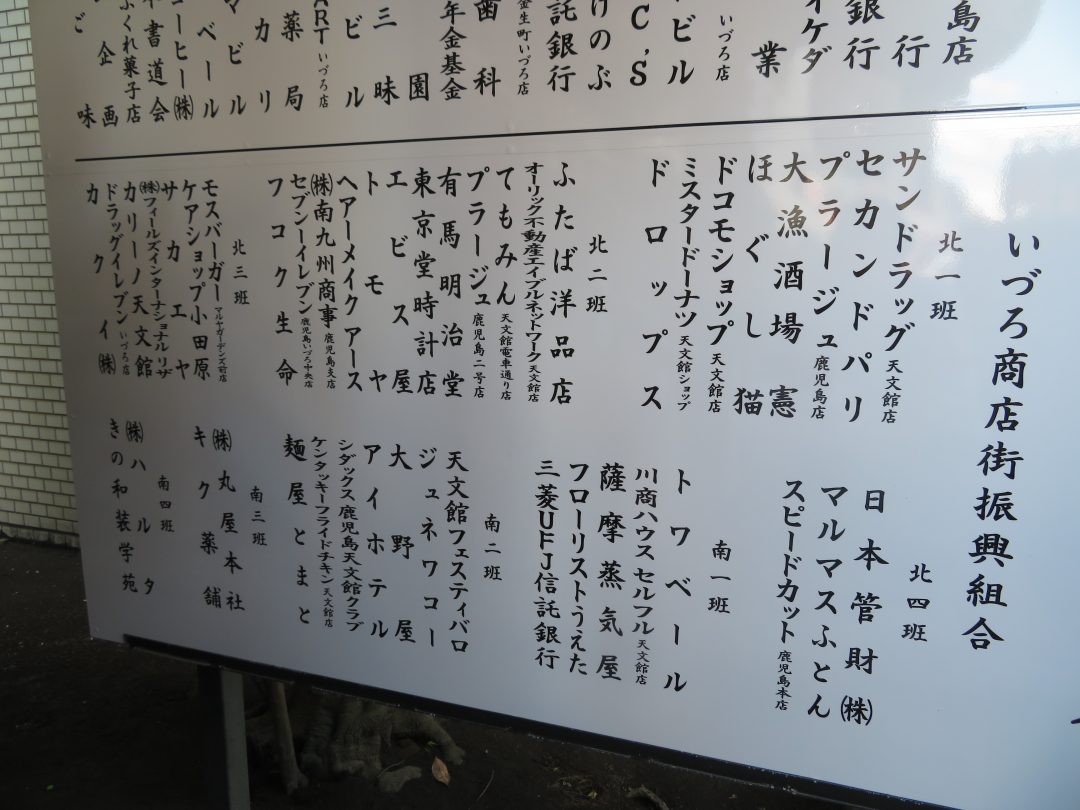 島店
行
銀行
イケダ
業
いづろ店
ビル
C'S
けのぶ
託銀行
金生町いづろ店
歯科
年金基金
園
三昧
ビル
ARTいづろ店
薬局
カリ
マビル
ベール
コーヒー㈱
書道会
ふくれ菓子店
企画
ご
味
いづろ商店街振興組合
北一班
サンドラッグ天文館店
セカンドパリ
プラージュ鹿児島店
大漁酒場憲
ほぐし猫
ドコモショップ天文館店
ミスタードーナツ天文館ショップ
ドロップス
北二班
ふたば洋品店
オーリック不動産エイブルネットワーク天文館店
てもみん天文館電車通り店
プラージュ鹿児島二号店
有馬明治堂
東京堂時計店
エビス屋
トモヤ
ヘアーメイクアース
㈱南九州商事鹿児島支店
セブンーイレブン鹿児島いづろ中央店
フコク生命
北三班
モスバーガーマルヤガーデンズ前店
ケアショップ小田原
サカエヤ
㈱フィールズインターナショナルリザ
カリーノ天文館
ドラッグイレブンいづろ店
カクイ㈱
北四班
日本管財㈱
マルマスふとん
スピードカット鹿児島本店
南一班
トワベール
川商ハウスセルフル天文館店
薩摩蒸気屋
フローリストうえた
三菱UFJ信託銀行
南二班
天文館フェスティバロ
ジュネワコー
大野屋
アイホテル
シダックス鹿児島天文館クラブ
ケンタッキーフライドチキン天文館店
麺屋とまと
南三班
㈱丸屋本社
キク薬舗
南四班
㈱ハルタ
きの和装学苑